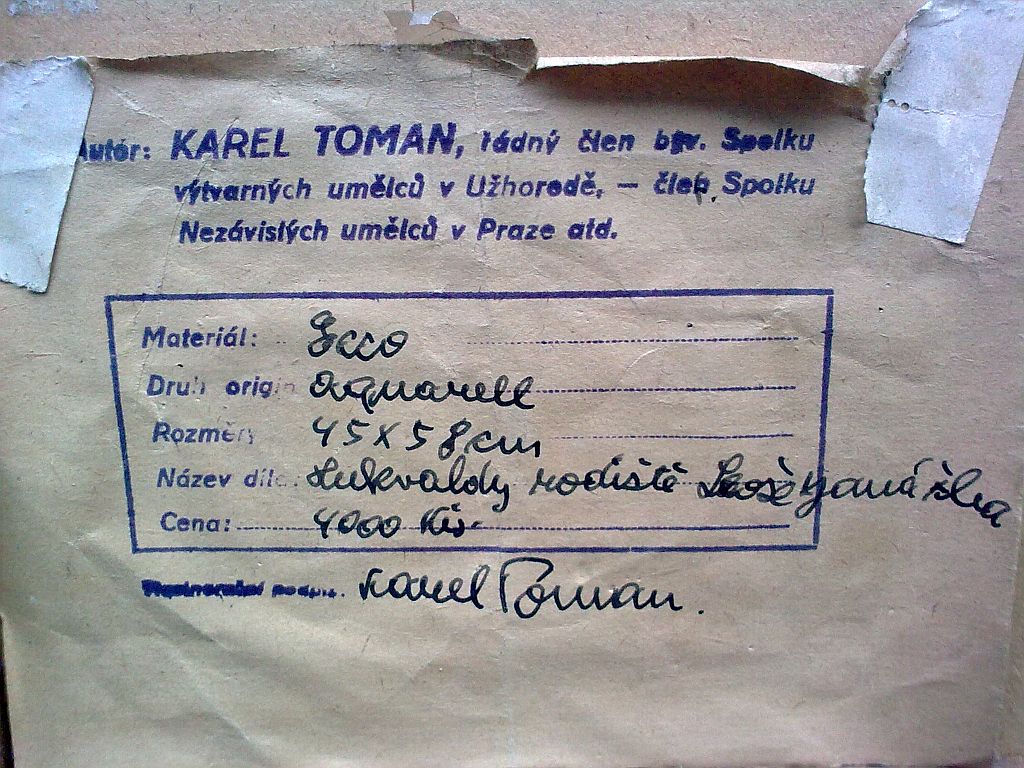 Autór: KAREL TOMAN, řádný člen býv. Spolku
výtvarných umělců v Užhorodě, — člen Spolku
Nezávislých umělců v Praze atd.
Materiál: Ecco
Druh orig. aquarell
Rozměry 45 x 58 cm
Název díla: Hukvaldy rodiště Leoše Janáčka
Cena: 4000 Kčs
Vlastnoruční podpis. Karel Toman.